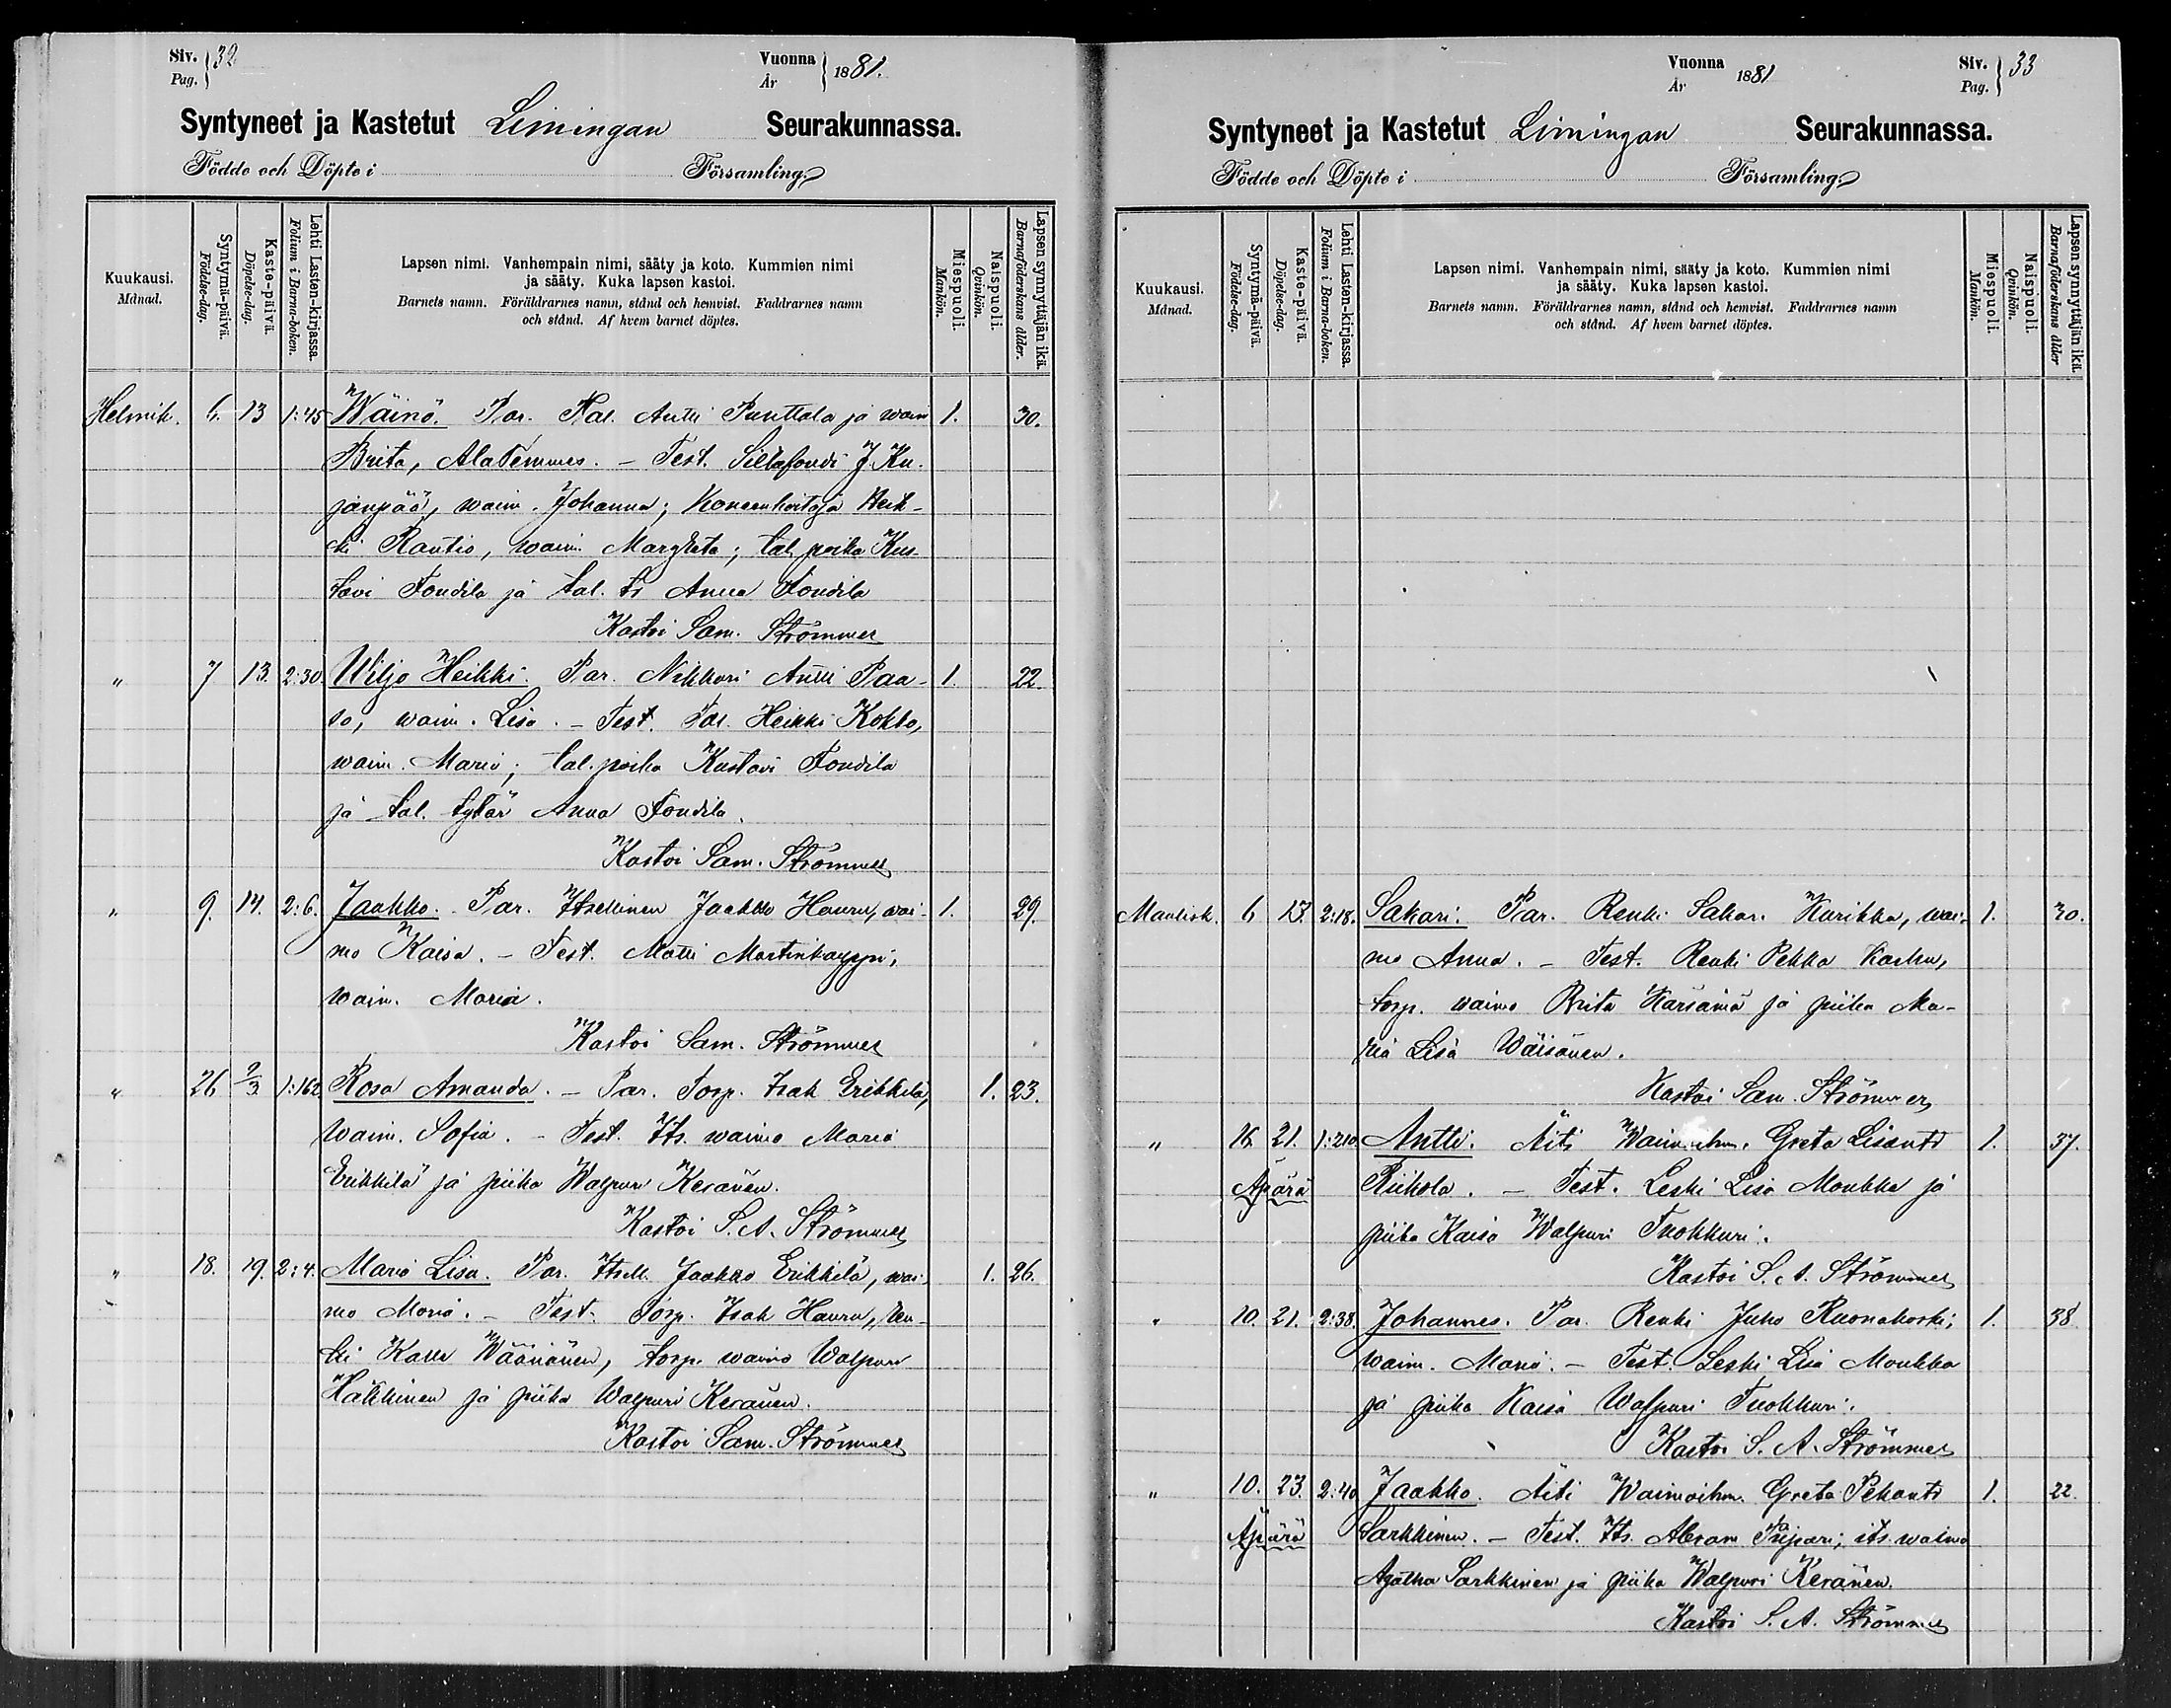 Siv. 32
Pag.
Vuonna 1881.
År
Syntyneet ja Kastetut Limingan Seurakunnassa.
Födde och Döpte i Församling
Kuukausi.
Månad.
Syntymä-päivä.
Födelse-dag.
Kaste-päivä.
Döpelse-dag.
Lehti Lasten-kirjassa.
Folium i Barna-boken.
Lapsen nimi. Vanhempain nimi, sääty ja koto. Kummien nimi
ja sääty. Kuka lapsen kastoi.
Barnets namn. Föräldrarnes namn, stånd och hemvist. Faddrarnes namn
och stånd. Af hvem barnet döptes.
Miespuoli.
Mankön.
Naispuoli.
Qvinkön.
Lapsen synnyttäjän ikä.
Barnaföderskans ålder.
Helmik. 6. 13 1:45 Wäinö. Par. Tal. Antti Punttala ja waim 1. 30.
Brita, AlaTemmes. – Test. Siltafoudi J. Ku-
janpää, waim. Johanna; Koneenhoitaja Heik-
ki Rautio, waim. Margreta; tal. poika Kus-
tavi Foudila ja tal. tr Anna Foudila
Kastoi Sam. Strömmer
" 7 13. 2:30. Wiljo Heikki. Par. Nikkari Antti Paa- 1. 22.
so, waim. Lisa. – Test. Tal. Heikki Kokko,
waim. Maria; tal. poika Kustavi Foudila
ja tal. tytär Anna Foudila.
Kastoi Sam. Strömmer
" 9. 14. 2:6. Jaakko. Par. Itsellinen Jaakko Hauru, wai- 1. 29.
mo Kaisa. – Test. Matti Martinkauppi,
waim. Maria.
Kastoi Sam. Strömmer
" 26 2/3 1:162 Rosa Amanda. – Par. Torp. Isak Erikkilä, 1. 23.
waim. Sofia. – Test. Its. waimo Maria
Erikkilä ja piika Walpuri Keränen.
Kastoi S. A. Strömmer
" 18. 19. 2:4. Maria Lisa. Par. Itsell. Jaakko Erikkilä, wai- 1. 26.
mo Maria. – Test. Torp. Isak Hauru, ren-
ki Kalle Wäänänen, torp. waimo Walpuri
Häkkinen ja piika Walpuri Keränen.
Kastoi Sam. Strömmer
Vuonna 1881
År
Siv. 33
Pag.
Syntyneet ja Kastetut Limingan Seurakunnassa.
Födde och Döpte i Församling
Kuukausi.
Månad.
Syntymä-päivä.
Födelse-dag.
Kaste-päivä.
Döpelse-dag.
Lehti Lasten-kirjassa.
Folium i Barna-boken.
Lapsen nimi. Vanhempain nimi, sääty ja koto. Kummien nimi
ja sääty. Kuka lapsen kastoi.
Barnets namn. Föräldrarnes namn, stånd och hemvist. Faddrarnes namn
och stånd. Af hvem barnet döptes.
Miespuoli.
Mankön.
Naispuoli.
Qvinkön.
Lapsen synnyttäjän ikä.
Barnaföderskans ålder
Maalisk. 6 13. 2:18. Sakari. Par. Renki Sakari Kurikka, wai- 1. 30.
mo Anna. – Test. Renki Pekka Karhu,
torp. waimo Brita Kärsämä ja piika Ma-
ria Lisa Wäisänen.
Kastoi Sam. Strömmer
" 16 21. 1:210 Antti. Äiti Waimoihm. Greta Lisantr 1. 37.
Äpärä Riikola. – Test. Leski Lisa Moukka ja
piika Kaisa Walpuri Tuokkuri.
Kastoi S. A. Strömmer
" 10. 21. 2:38. Johannes. Par. Renki Juho Ruonakoski, 1. 38
waim. Maria. – Test. Leski Lisa Moukka
ja piika Kaisa Walpuri Tuokkuri.
Kastoi S. A. Strömmer
" 10. 23. 2:40 Jaakko. Äiti Waimoihm. Greta Pekantr 1. 22.
Äpärä Sarkkinen. – Test. Its. Abram its. waimo
Agatha Sarkkinen ja piika Walpuri Keränen.
Kastoi S. A. Strömmer